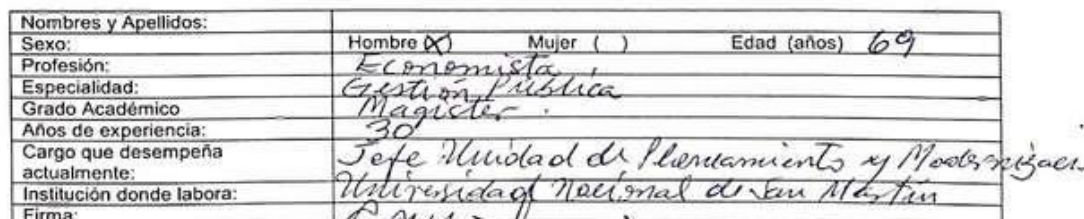 Nombres y Apellidos:
Sexo: Hombre (X) Mujer ( ) Edad (años) 69
Profesión: Economista
Especialidad: Gestión Pública
Grado Académico Magister.
Años de experiencia: 30
Cargo que desempeña actualmente: Jefe Unidad de Planeamiento y Modernizac.
Institución donde labora: Universidad Nacional de San Martín
Firma: